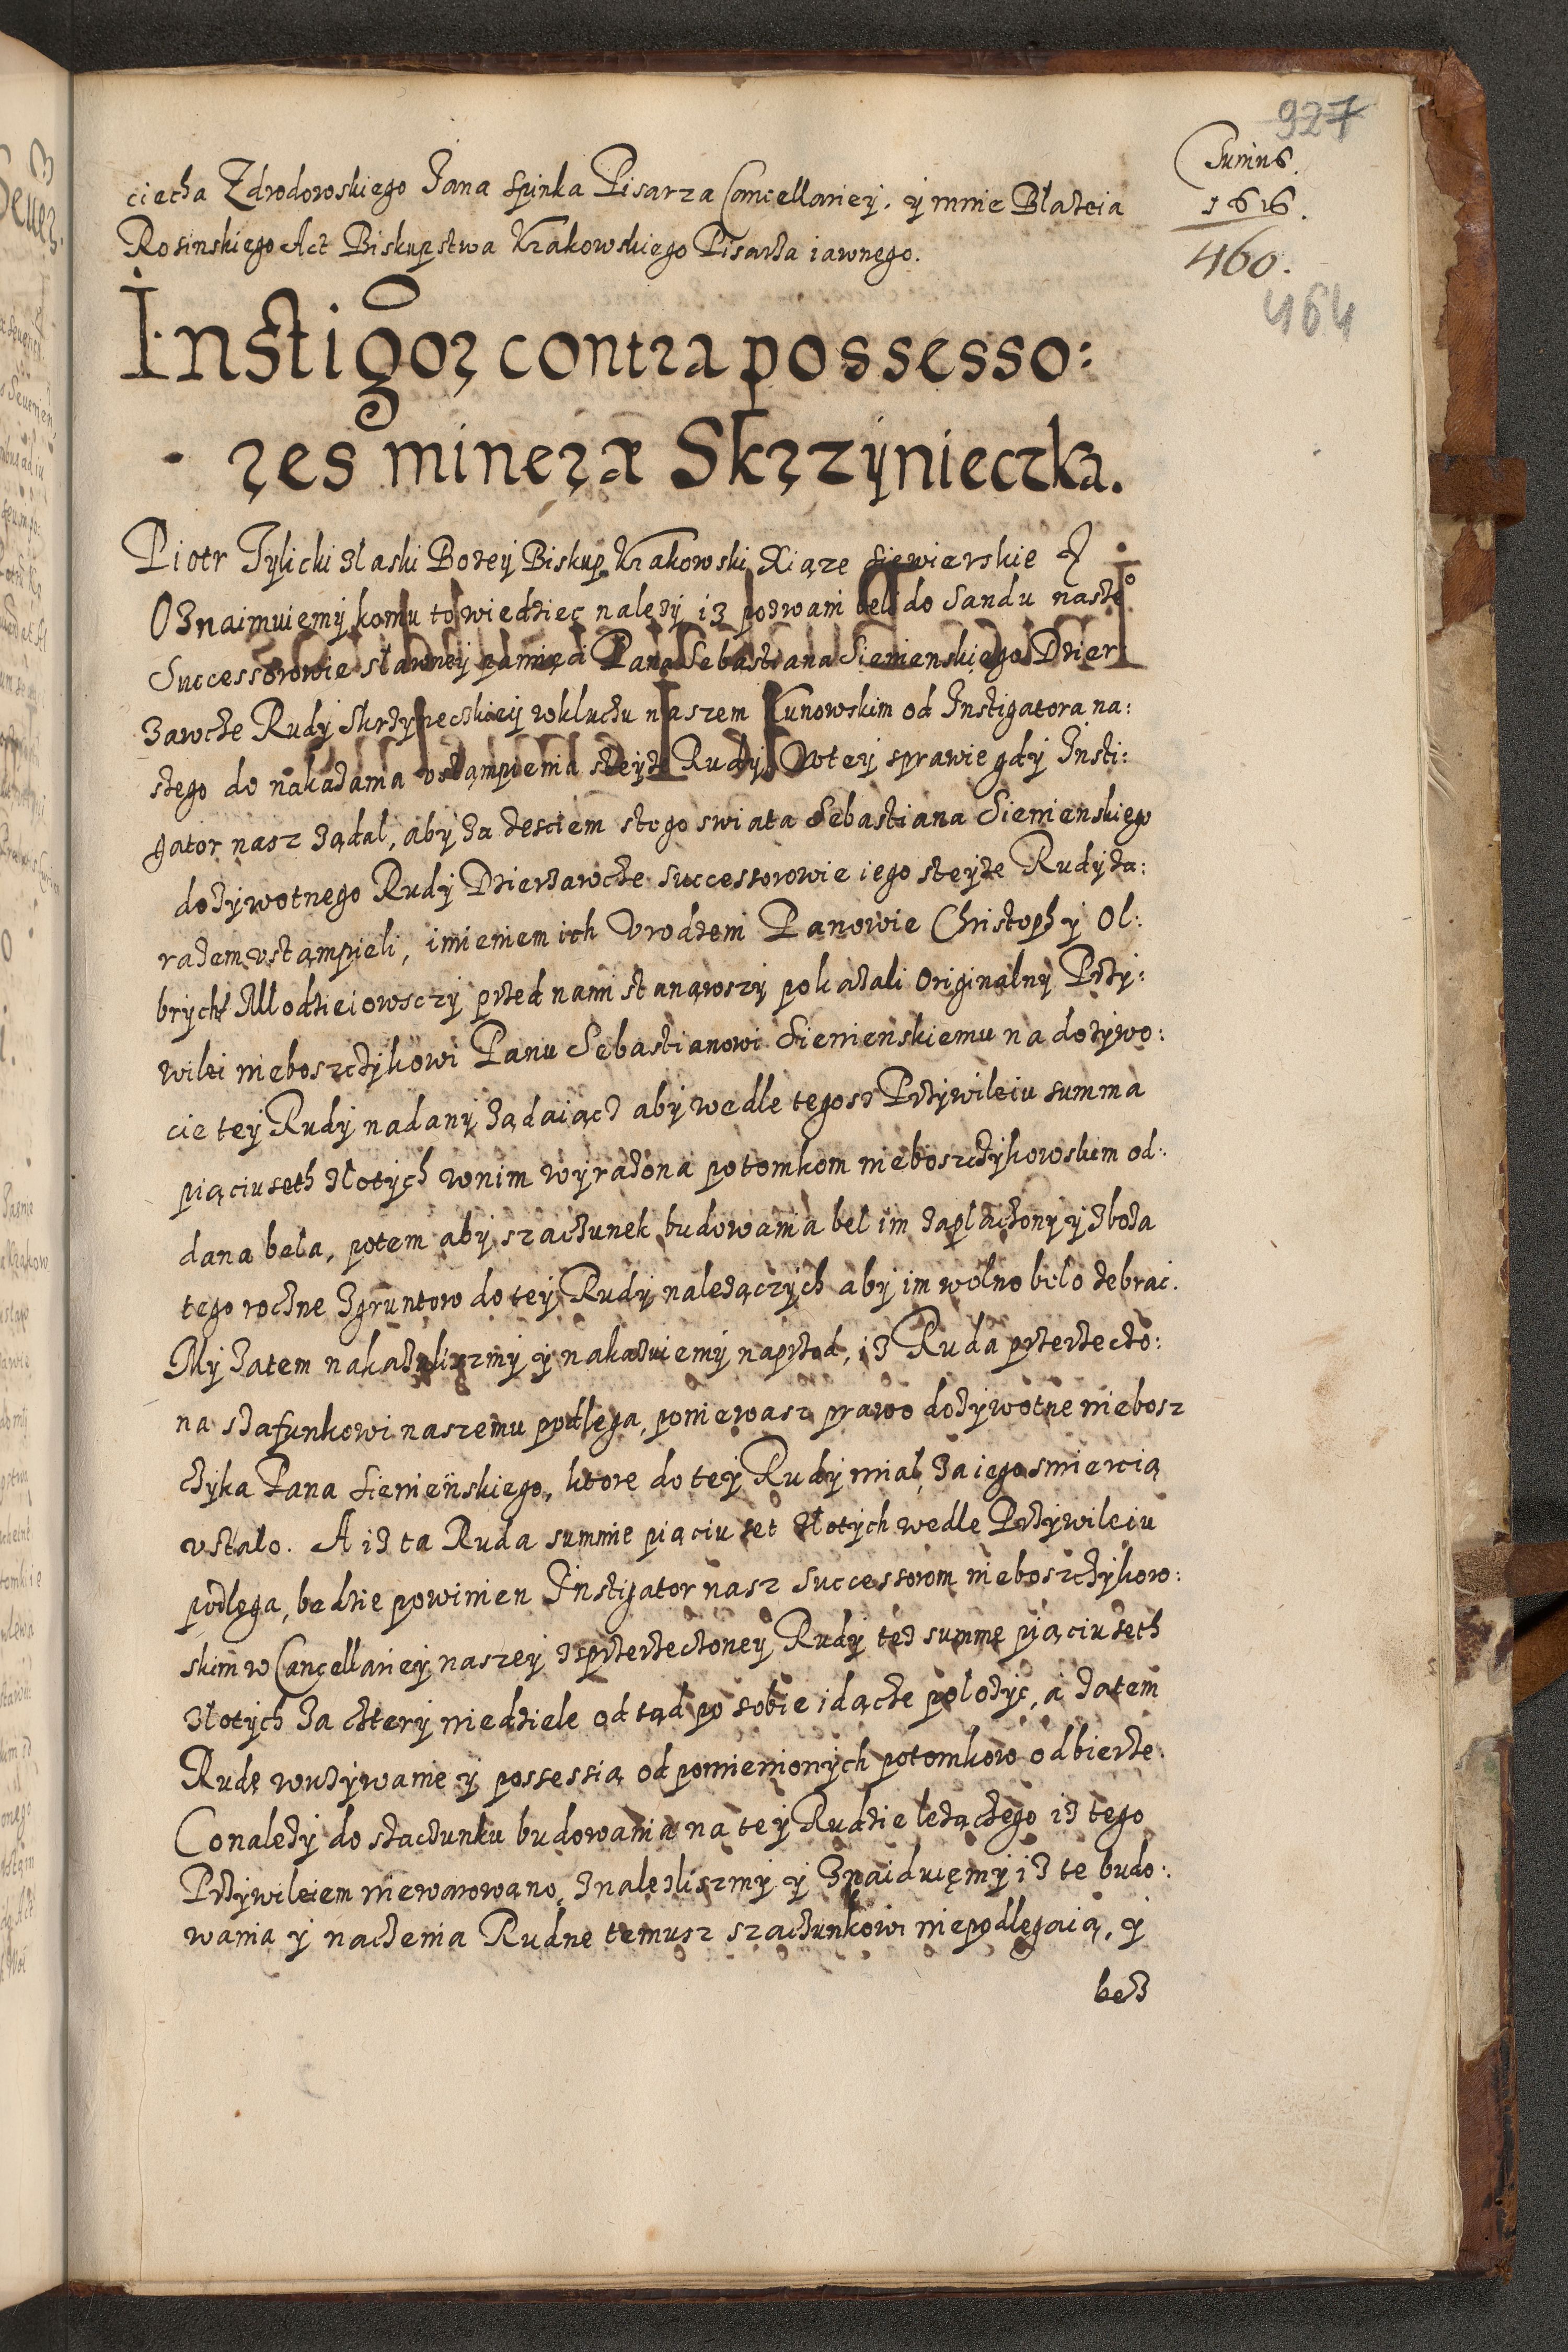 927
Junius.
1616.
460.
464
ciecha Zdrodowskiego Jana Spinka Pisarza Cancellariey. y mnie Błazeia
Rosinskiego Act Biskupstwa Krakowskiego Pisarza iawnego.
Instigor contra possesso:
- res mineræ Skrzynieczka.
Piotr Tylicki z łaski Bozey Biskup Krakowski Xiąze Siewierskie
Oznaimuiemy komu to wiedziec nalezy iz pozwani beli do Sandu naszego
Successorowie sławney pamięci Pana Sebastiana Siemienskiego Dzier:
zawcze Rudy Skrzyneczkiey w kluczu naszem Kunowskim od Instigatora na:
szego do nakazania ustąmpienia steyze Rudy. W tey sprawie gdy Insti:
gator nasz ządal, aby za zesciem stego swiata Sebastiana Siemienskiego
dozywotnego Rudy Dzierzawcze successorowie iego steyze Rudy za:
razem ustąmpieli, imieniem ich Urodzeni Panowie Christoph y Ol:
brycht Młodzieiowsczy przed nami stanąwszy pokazali Originalny Przy:
wilei nieboszczykowi Panu Sebastianowi Siemienskiemu na dozywo:
cie tey Rudy nadany ządaiącz aby wedle tegosz Przywileiu summa
piąciuseth złotych w nim wyrazona potomkom nieboszczykowskim od:
dana bela, potem aby szaczunek budowania bel im zaplaczony y zboza
tego roczne z gruntow do tey Rudy nalezączych aby im wolno belo zebrac.
My zatem nakazalismy y nakazuiemy naprzod, iz Ruda przerzeczo:
na szafunkowi naszemu podlega, poniewasz prawo dozywotne niebosz
czyka Pana Siemienskiego, ktore do tey Rudy mial, za iego smiercią
ustalo. A iz ta Ruda summie piąciuset złotych wedle Przywileiu
podlega, bedzie powinien Instigator nasz Successorom nieboszczykow:
skim w Cancellariey naszey z przerzeczoney Rudy tez summę piąciuseth
złotych za cztery niedziele od tąd po sobie idącze polozyc, a zatem
Rudę w uzywanie y possessią od pomienionych potomkow odbierze.
Co nalezy do szaczunku budowania na tey Rudzie lezączego iz tego
Przywileiem niewarowano, znalezliszmy y znaiduięmy iz te budo:
wania y naczenia Rudne temusz szaczunkowi niepodlegaią, y
bez